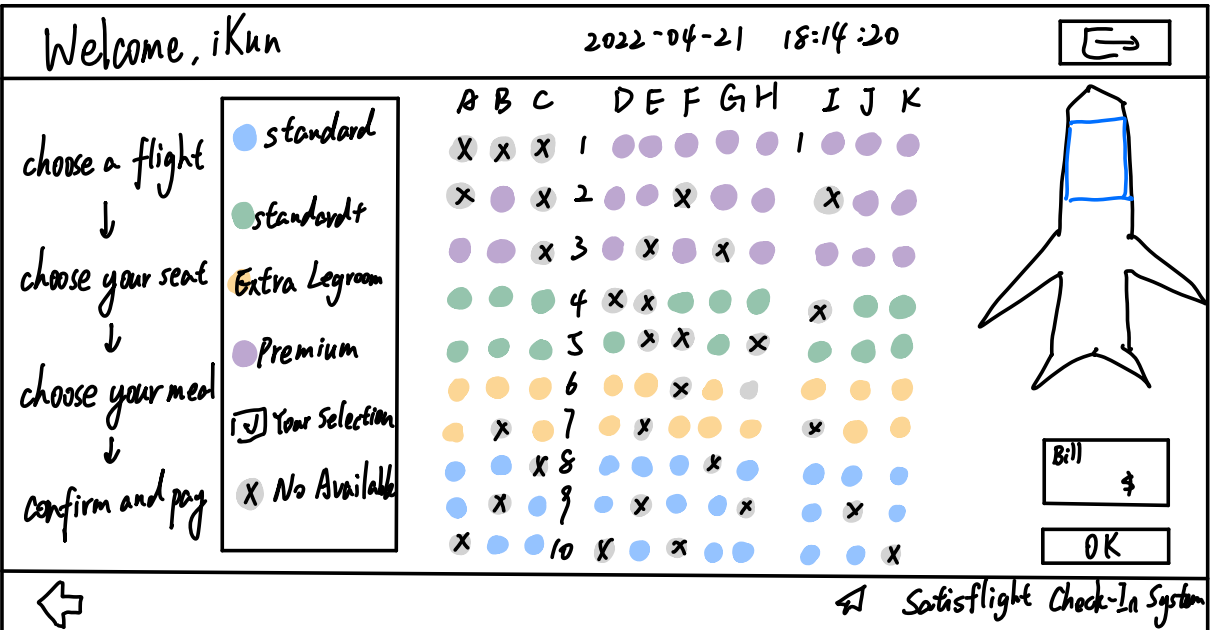 Welcome, iKun
2022-04-21 18:14:20
choose a flight
choose your seat
choose your meal
confirm and pay
standard
standard+
Extra Legroom
Premium
Your Selection
X No Available
A B C D E F G H I J K
X X X 1 1
X X 2 X X
X 3 X X
4 X X X
5 X X X
6 X
X 7 X X
X 8 X
X 9 X X X
X 10 X X X
Bill
$
OK
Satisflight Check-In System